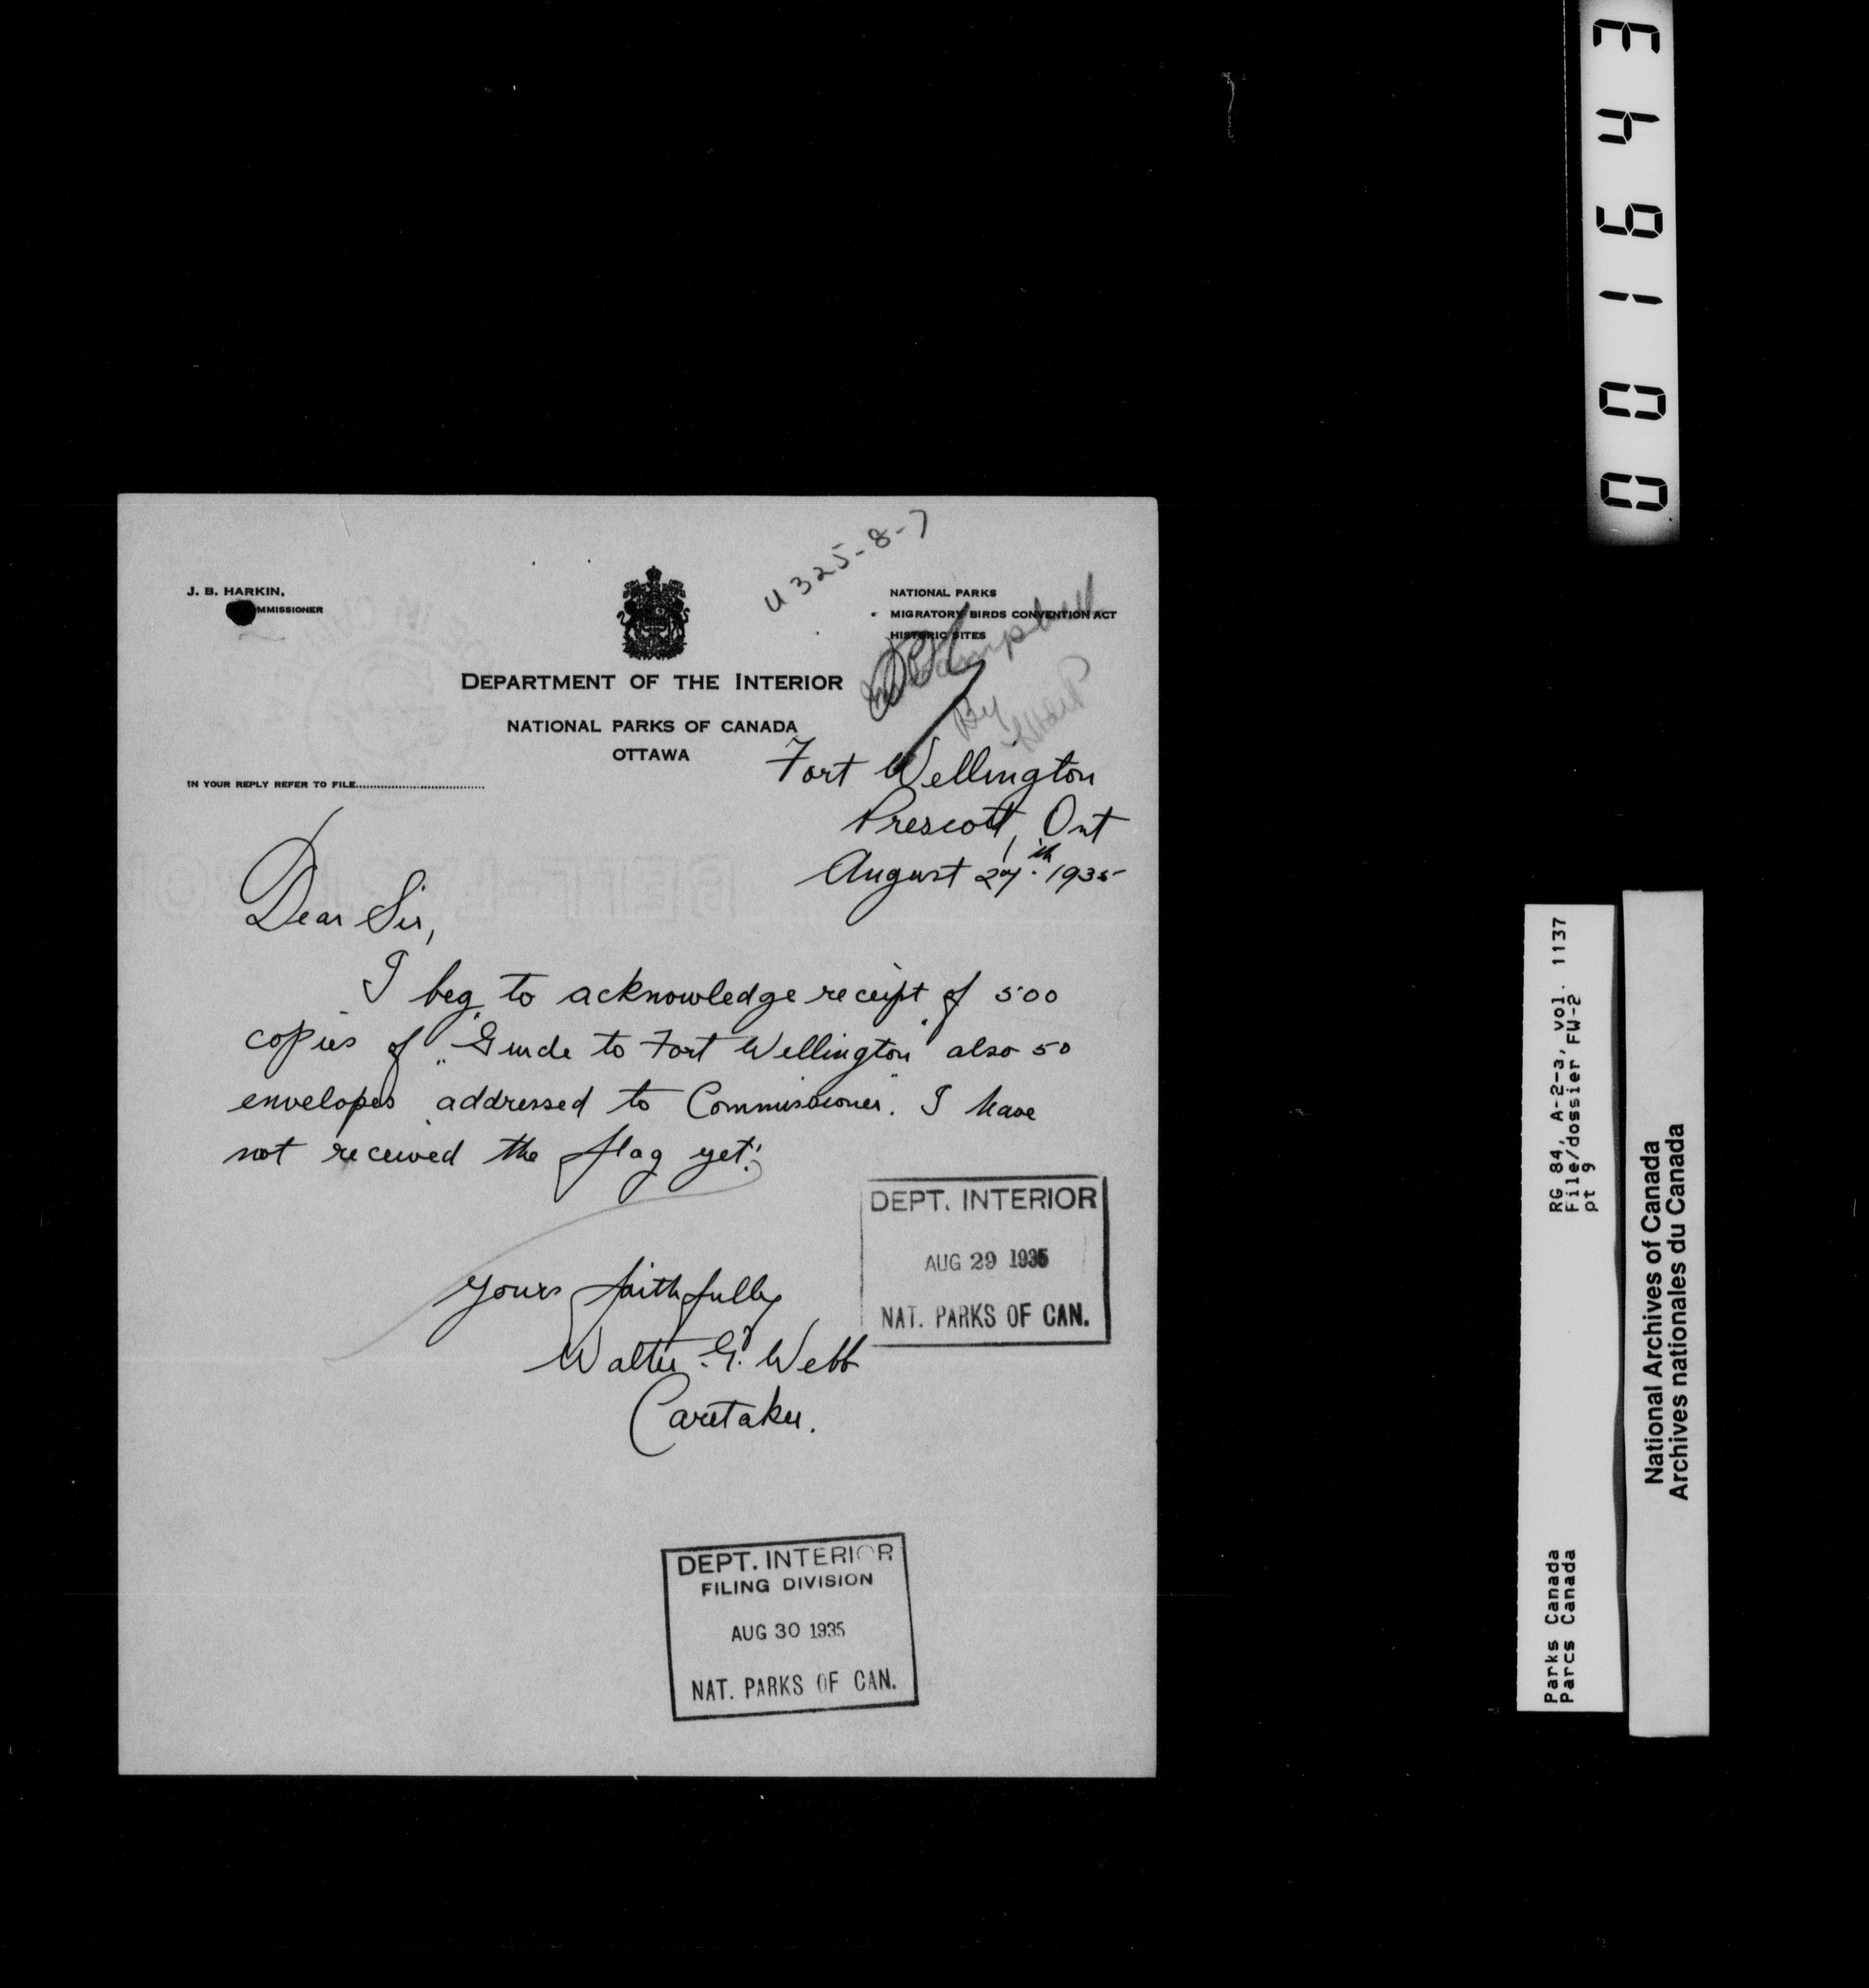 001643
U 325-8-7
J. B. HARKIN,
MMISSIONER
NATIONAL PARKS
MIGRATORY BIRDS CONVENTION ACT
HISTORIC SITES
Campbell
By
DEPARTMENT OF THE INTERIOR
NATIONAL PARKS OF CANADA
OTTAWA
IN YOUR REPLY REFER TO FILE
Fort Wellington
Prescott, Ont
August 27th 1935
Dear Sir,
I beg to acknowledge receipt of 500
copies of "Guide to Fort Wellington" also 50
envelopes addressed to "Commissioner". I have
not received the flag yet.
Yours faithfully
Walter G. Webb
Caretaker.
DEPT. INTERIOR
AUG 29 1935
NAT. PARKS OF CAN.
DEPT. INTERIOR
FILING DIVISION
AUG 30 1935
NAT. PARKS OF CAN.
RG 84, A-2-3, vol. 1137
File/dossier FW-2
pt 9
Parks Canada
Parcs Canada
National Archives of Canada
Archives nationales du Canada